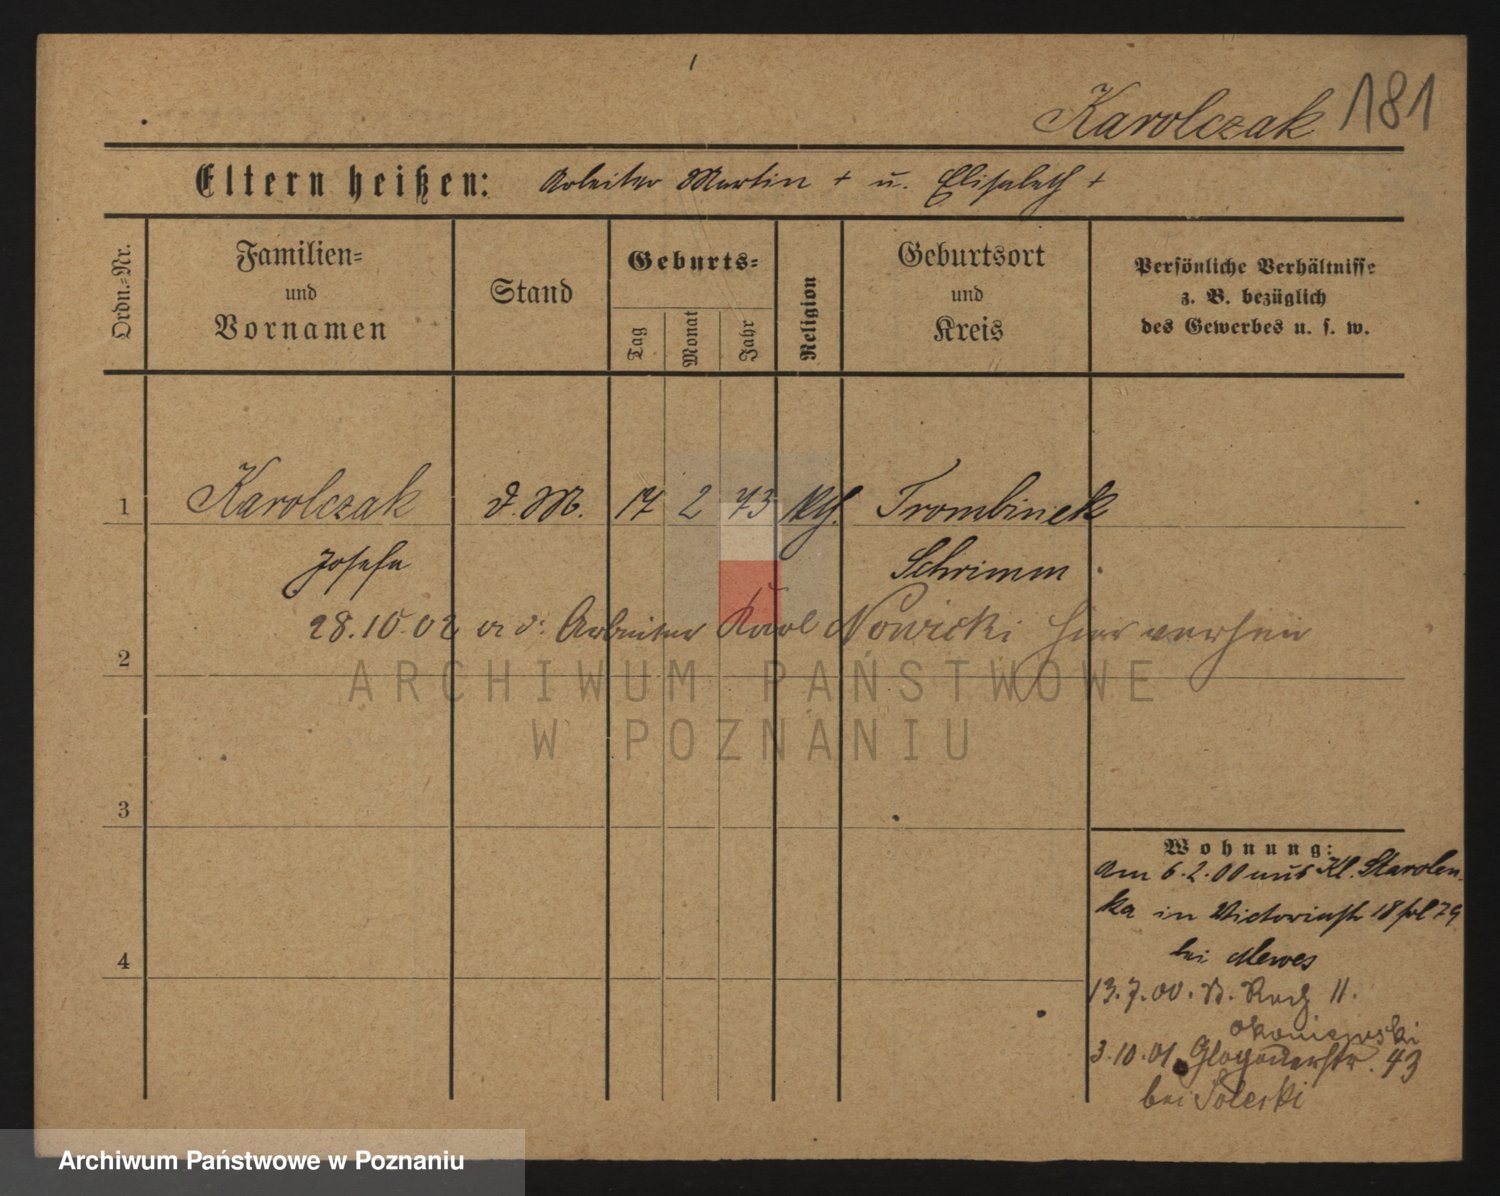 Karolczak 181
Eltern heißen: Arbeiter Martin † u. Elisabeth †
Ordn.-Nr.
Familien-
und
Vornamen
Stand
Geburts-
Tag
Monat
Jahr
Religion
Geburtsort
und
Kreis
Persönliche Verhältnisse
z. B. bezüglich
des Gewerbes u. s. w.
1 Karolczak d. M. 17 2 73 kth. Trombinek
Josefa Schrimm
28.10.02 Arbeiter Karl Nowicki hier
2
ARCHIWUM PAŃSTWOWE
W POZNANIU
3
Wohnung:
am 6.2.00 aus Kl. Starolen-
ka in Victoriastr 18
bei Mewes
4
13.7.00. 11.
Okoniewski
3.10.01. Glogauerstr. 43
bei
Archiwum Państwowe w Poznaniu